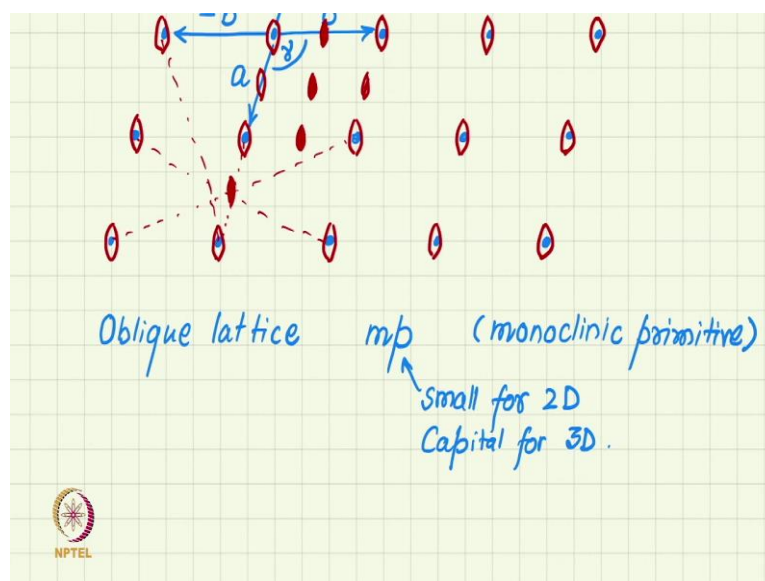 -b b
a γ
Oblique lattice mp (monoclinic primitive)
Small for 2D
Capital for 3D.
NPTEL